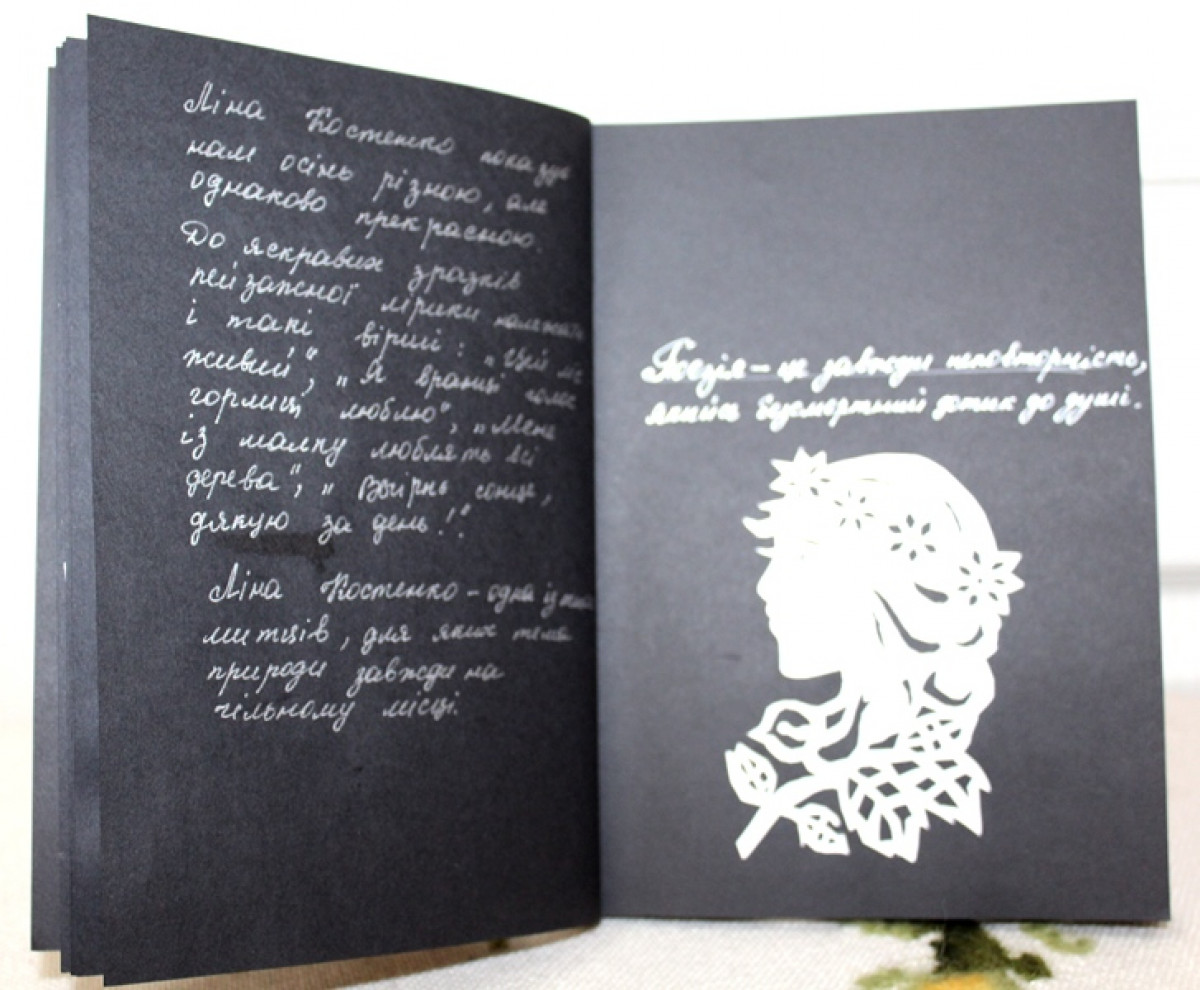 Ліна Костенко показує
нам осінь різною, але
однаково прекрасною.
До яскравих зразків
пейзажної лірики належать
і такі вірші: „Цей ліс
живий", „Я вранці голос
горлиці люблю", „Мене
із малку люблять всі
дерева", „Вечірнє сонце,
дякую за день!"
Ліна Костенко – одна із
митців, для яких тема
природи завжди на
чільному місці.
Поезія – це завжди неповторність,
якийсь безсмертний дотик до душі.